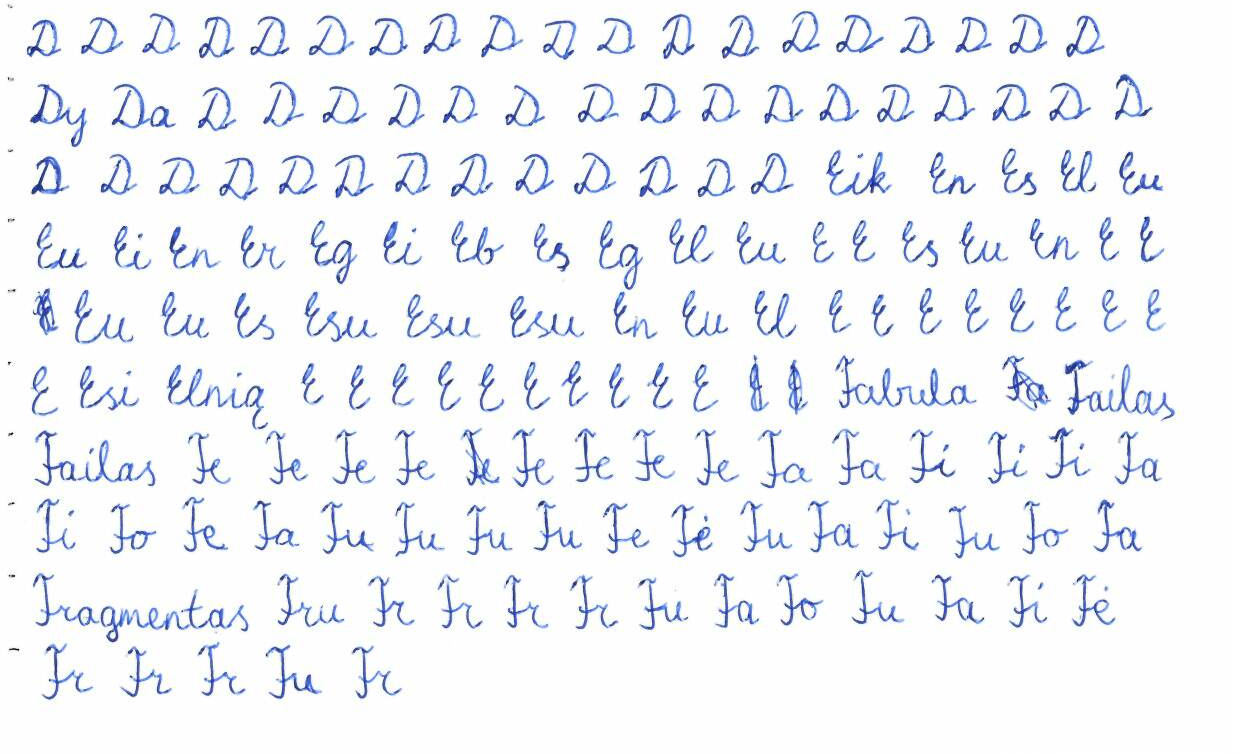 D D D D D D D D D D D D D D D D D D D
Dy Da D D D D D D D D D D D D D D D D
D D D D D D D D D D D D D Eik En Es El Eu
Eu Ei En Er Eg Ei Eb Eş Eg El Eu E E Es Eu En E E
Eu Eu Es Esu Esu Esu En Eu El E E E E E E E E
E Esi Elnią E E E E E E E E E E Fabula Failas
Failas Fe Fe Fe Fe Fe Fe Fe Fe Fa Fa Fi Fi Fi Fa
Fi Fo Fe Fa Fu Fu Fu Fu Fe Fė Fu Fa Fi Fu Fo Fa
Fragmentas Fru Fr Fr Fr Fr Fu Fa Fo Fu Fa Fi Fė
Fr Fr Fr Fu Fr